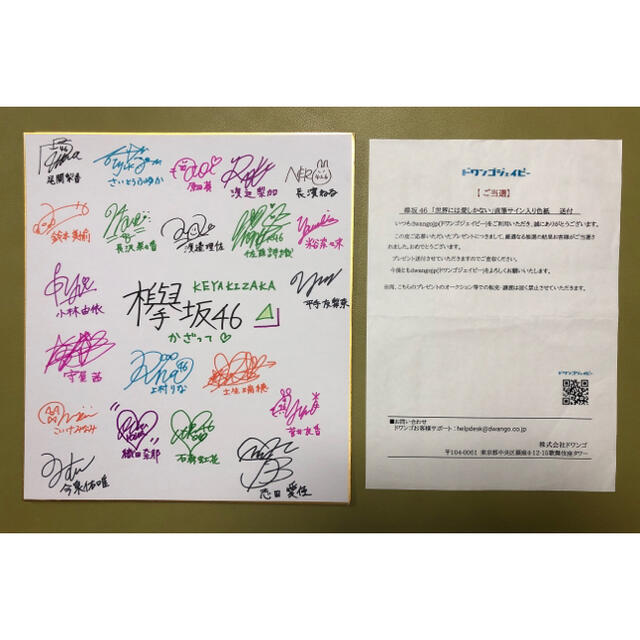 尾関梨香
さいとうふゆか
原田葵
渡辺梨加
NERU
長濱ねる
鈴本美愉
長沢菜々香
渡邉理佐
佐藤詩織
米谷奈々未
小林由依
KEYAKIZAKA
欅坂46
かざって
平手友梨奈
守屋茜
上村りな
土生瑞穂
こいけみなみ
織田奈那
石森虹花
菅井友香
今泉佑唯
志田愛佳
ドワンゴジェイピー
【ご当選】
欅坂46「世界には愛しかない」直筆サイン入り色紙 送付
いつもdwango.jp(ドワンゴジェイピー)をご利用いただき、誠にありがとうございます。
この度ご応募いただいたプレゼントにつきまして、厳選なる抽選の結果お客様がご当選さ
れました。おめでとうございます。
プレゼント送付させていただきますのでご査収ください。
今後ともdwango.jp(ドワンゴジェイピー)をよろしくお願いいたします。
尚、こちらのプレゼントのオークション等での転売・譲渡は固く禁止させていただきます。
ドワンゴジェイピー
■お問い合わせ
ドワンゴお客様サポート:helpdesk@dwango.co.jp
株式会社ドワンゴ
〒104-0061 東京都中央区銀座4-12-15歌舞伎座タワー